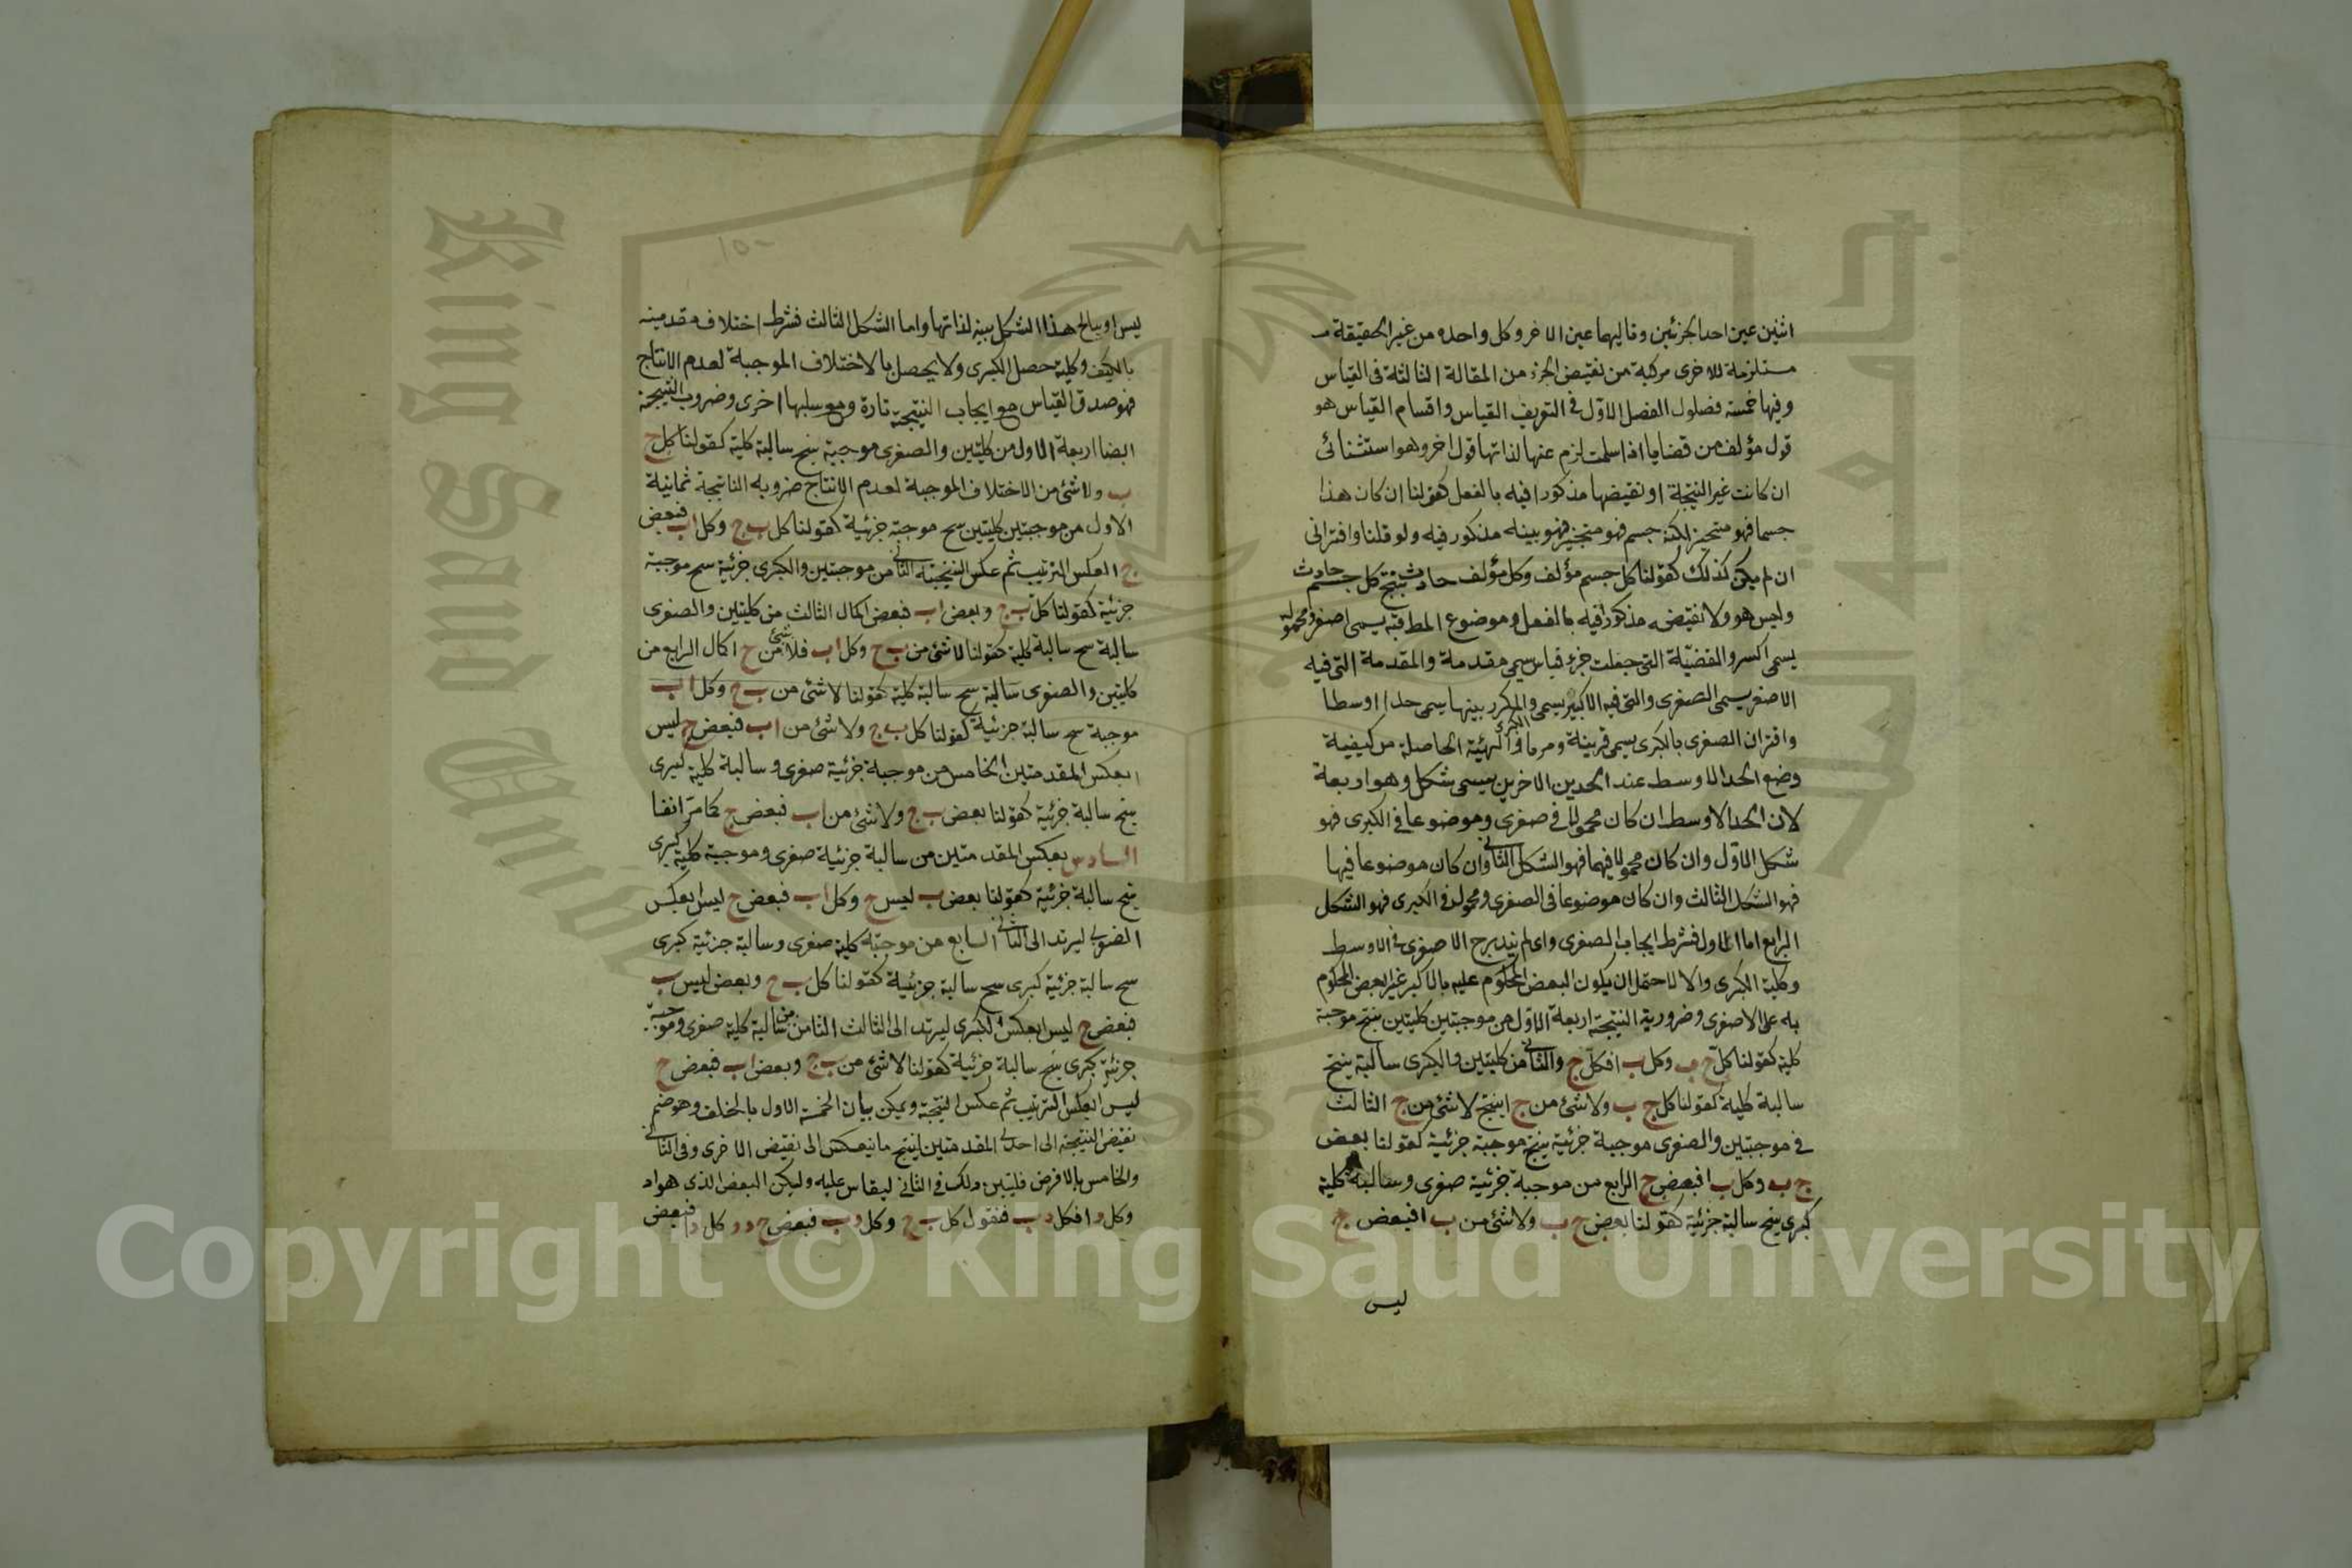 اثنين عين احد الجزئين وتاليهما عين الاخر وكل واحدة من غير الحقيقة مـ
مستلزمة للاخرى مركبة من نقيض الجزء من المقالة الثالثة فى القياس
وفيها خمسة فصلول الفصل الاول فى التعريف القياس واقسام القياس هو
قول مؤلف من قضايا اذا سلمت لزم عنها لذاتها قول اخر وهو استثنائى
ان كانت غير النتيجة او نقيضها مذكورا فيه بالفعل كقولنا ان كان هذا
جسما فهو متحيز لكنه جسم فهو متحيز فهو بينه مذكور فيه ولو قلنا واقترانى
ان لم يكن كذلك كقولنا كل جسم مؤلف وكل مؤلف حادث ينتج كل جسم حادث
وليس هو ولا نقيضه مذكور فيه بالفعل وموضوع المط فيه يسمى اصغر ومحموله
يسمى اكسر والقضية التى جعلت جزء قياس سمى مقدمة والمقدمة التى فيه
الاصغر يسمى الصغرى والتى فيه الاكبر يسمى والمكرر بينهما يسمى حدا اوسطا
واقتران الصغرى بالكبرى يسمى قرينة وضربا والهئية الحاصلة من كيفية
وضع الحد الاوسط عند الحدين الاخرين يسمى شكل وهو اربعة
لان الحد الاوسط ان كان محمولا فى صغرى وموضوعا فى الكبرى فهو
شكل الاول وان كان محمولا فيهما فهو الشكل الثانى وان كان موضوعا فيها
فهو الشكل الثالث وان كان موضوعا فى الصغرى ومحمولا فى الكبرى فهو الشكل
الرابع اما الاول فشرط ايجاب الصغرى والا لم يندرج الاصغر فى الاوسط
وكلية الكبرى والا لاحتمل ان يكون البعض المحكوم عليه بالاكبر غير البعض المحكوم
به على الاصغرى وضرورية النتيجة اربعة الاول من موجبتين كليتين ينتج موجبة
كلية كقولنا كل ج ب وكل ب ا فكل ج والثانى من كليتين والكبرى سالبة ينتج
سالبة كلية كقولنا كل ج ب ولا شئ من ج ا ينتج لا شئ من ج الثالث
فى موجبتين والصغرى موجبة جزئية ينتج موجبة جزئية كقولنا بعض
ج ب وكل ب ا فبعض ج الرابع من موجبة جزئية صغرى وسالبة كلية
كبرى ينتج سالبة جزئية كقولنا بعض ج ب ولا شئ من ب ا فبعض ج
ليس
١٥٠
ليس ا ويبالح هذا الشكل بينه لذاتها واما الشكل الثالث فشرط اختلاف مقدمية
بالكيف وكلية حصل الكبرى ولا يحصل بالاختلاف الموجبة لعدم الانتاج
فهو صدق القياس مع ايجاب النتيجة تارة ومع سلبها اخرى وضروب النتيجة
ايضا اربعة الاول من كليتين والصغرى موجبة ينتج سالبة كلية كقولنا كل ج
ب ولا شئ من الاختلاف الموجبة لعدم الانتاج ضروبه الناتجة ثمانية
الاول من موجبتين كليتين سح موجبة جزئية كقولنا كل ب ج وكل ا ب فبعض
ج العكس الترتيب ثم عكس النتيجة الثانى من موجبتين والكبرى جزئية سح موجبة
جزئية كقولنا كل ب ج وبعض ا ب فبعض اكال الثالث من كليتين والصغرى
سالبة سح سالبة كلية كقولنا لا شئ من ب ج وكل ا ب فلا شئ من ج اكال الرابع من
كليتين والصغرى سالبة سح سالبة كلية كقولنا لا شئ من ب ج وكل ا ب
موجبة سح سالبة جزئية كقولنا كل ب ج ولا شئ من ا ب فبعض ج ليس
ابعكس المقدمتين الخامس من موجبة جزئية صغرى وسالبة كلية كبرى
ينتج سالبة جزئية كقولنا بعض ب ج ولا شئ من ا ب فبعض ج كما مر انفا
السادس بعكس المقدمتين من سالبة جزئية صغرى وموجبة كلية كبرى
ينتج سالبة جزئية كقولنا بعض ب ليس ج وكل ا ب فبعض ج ليس ابعكس
الضوبى ليرتد الى الثانى السابع من موجبة كلية صغرى وسالبة جزئية كبرى
سح سالبة جزئية كبرى سح سالبة جزئية كقولنا كل ب ج وبعض ا ليس ب
فبعض ج ليس ابعكس الكبرى ليرتد الى الثالث الثامن من سالبة كلية صغرى وموجبة
جزئية كبرى ينتج سالبة جزئية كقولنا لا شئ من ب ج وبعض ا ب فبعض ج
ليس ابعكس الترتيب ثم عكس النتيجة ويمكن بيان الخمسة الاول بالخلف وهو ضم
نقيض النتيجة الى احدى المقدمتين لينتج ما ينعكس الى نقيض الاخرى وفى الثانى
والخامس بالافرض فليتبين ذلك فى الثانى ليقاس عليه وليكن البعض الذى هو ا د
وكل د ا فكل د ب فنقول كل ب ج وكل د ب فبعض ج د وكل د ا فبعض
King Saud University
Copyright © King Saud University
1957